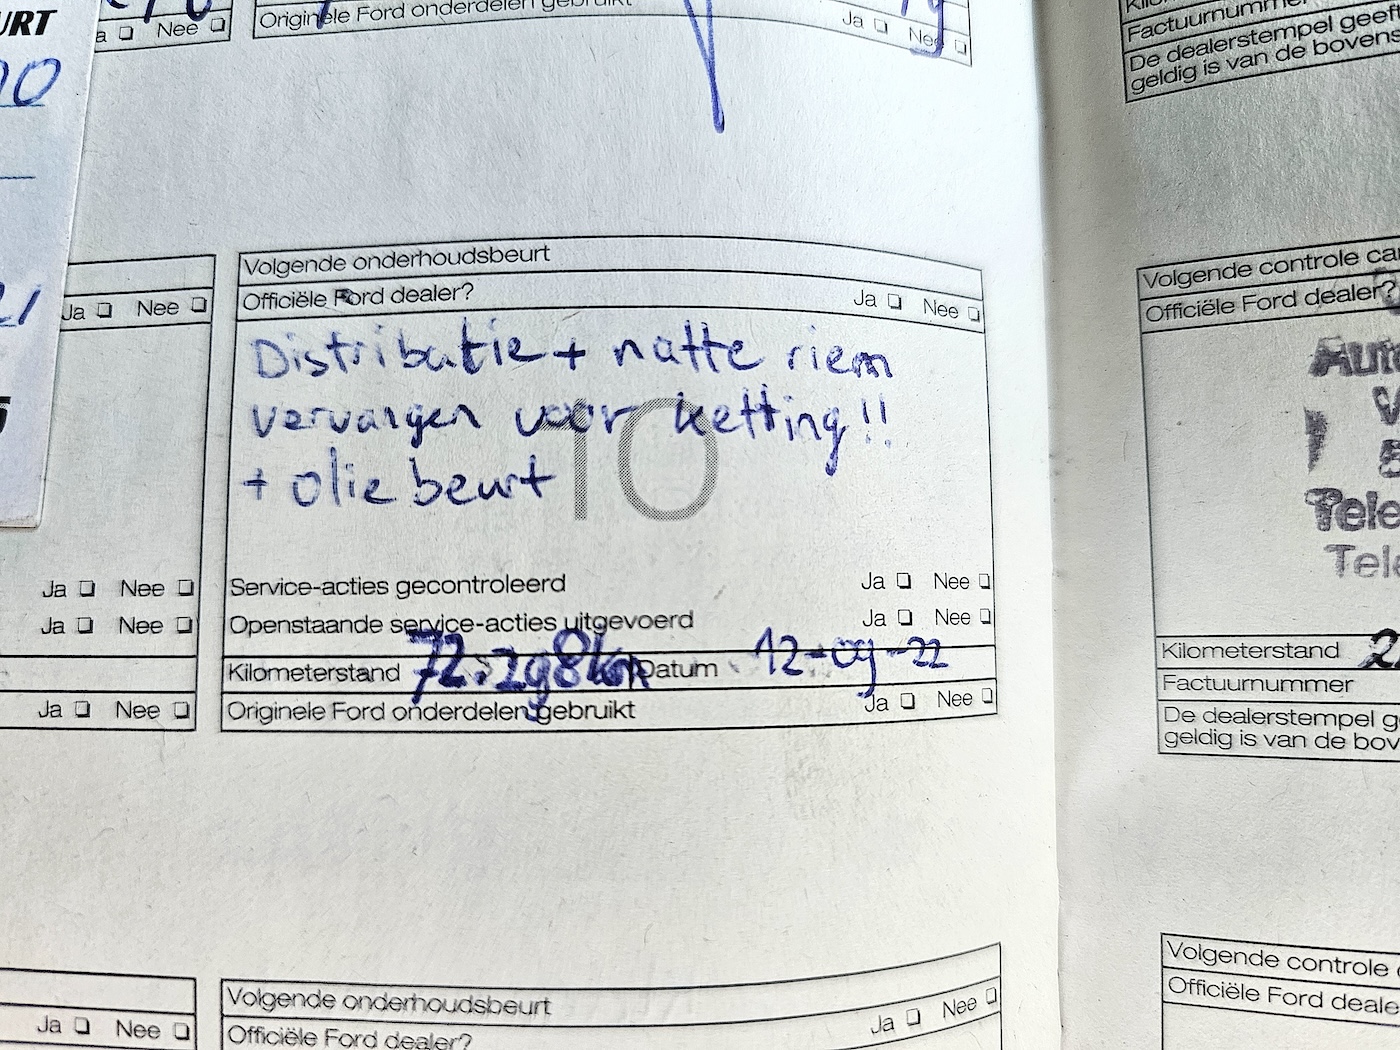 URT
a ❑ Nee ❑
Originele Ford onderdelen gebruikt Ja ❑ Nee ❑
Factuurnummer
De dealerstempel geeft
geldig is van de bovens
Ja ❑ Nee ❑
Volgende onderhoudsbeurt
Officiële Ford dealer? Ja ❑ Nee ❑
Distributie + natte riem
vervangen voor ketting!!
+ olie beurt
10
Service-acties gecontroleerd Ja ❑ Nee ❑
Openstaande service-acties uitgevoerd Ja ❑ Nee ❑
Kilometerstand 72.298km Datum 12-09-22
Originele Ford onderdelen gebruikt Ja ❑ Nee ❑
Ja ❑ Nee ❑
Ja ❑ Nee ❑
Ja ❑ Nee ❑
Volgende controle ca
Officiële Ford dealer?
Aut
Tele
Tele
Kilometerstand 2
Factuurnummer
De dealerstempel g
geldig is van de bov
Ja ❑ Nee ❑
Volgende onderhoudsbeurt
Officiële Ford dealer? Ja ❑ Nee ❑
Volgende controle
Officiële Ford deale